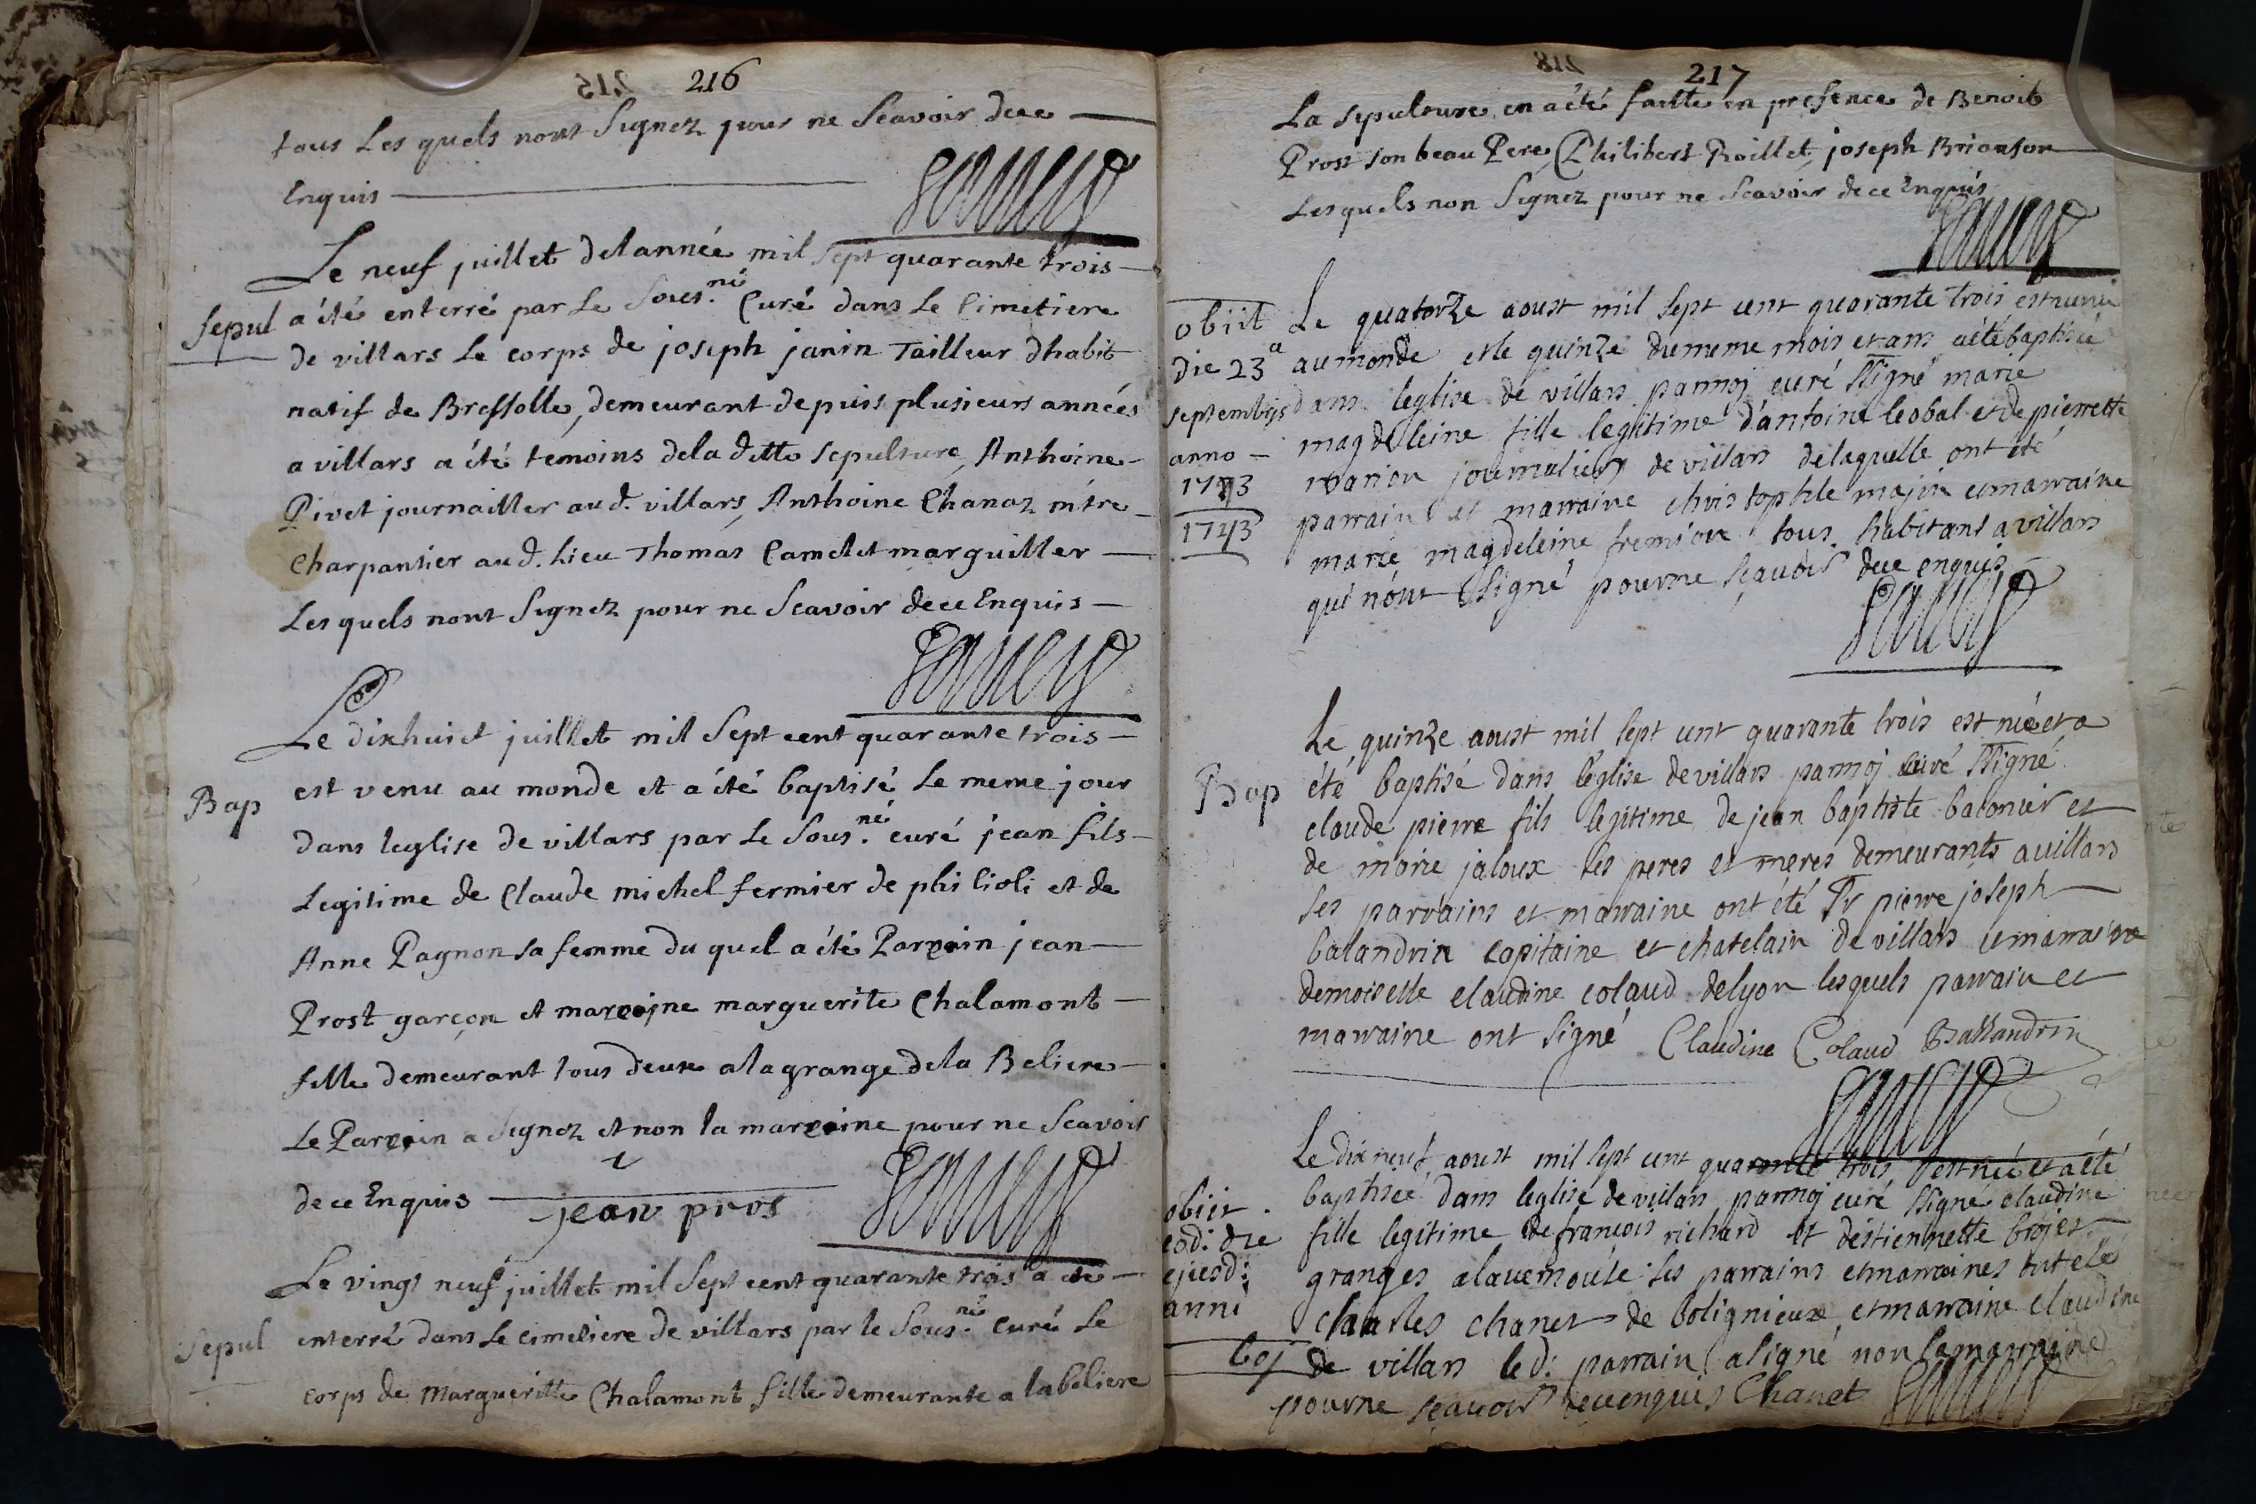 215 216
tous Les quels nont Signez pour ne Scavoir dece
Enquis
Le neuf juillet delannée mil Sept quarante trois
Sepul a été enterré par Le Sous.né Curé dans Le Cimetiere
de villars Le corps de joseph janin Tailleur dhabit
natif de Bressolle, demeurant depuis plusieurs années
a villars a été temoins dela ditte Sepulture Anthoine
Pivet journailler aud. villars, Anthoine Chanaz mtre
Charpantier aud. Lieu Thomas Camelet marguiller
Les quels nont Signez pour ne Scavoir dece Enquis
Le dixhuict juillet mil Sept cent quarante trois
Bap
est venu au monde et a été baptisé Le meme jour
dans leglise de villars par Le Sous.né curé jean fils
Legitime de Claude michel fermier de phi lioli et de
Anne Pagnon sa femme du quel a été Parrain jean
Prost garçon et marraine marguerite Chalamont
fille demeurant tous deux a la grange dela Beliere
Le Parrain a Signez et non la marraine pour ne Scavoir
dece Enquis jean pros
Le vingt neuf juillet mil Sept cent quarante trois a été
Sepul enterré dans Le cimetiere de villars par le Sous.né curé Le
corps de Margueritte Chalamont fille demeurante a labeliere
218 217
La sepulture en a été faitte en presence de Benoit
Prost son beau Pere Philibert Roillet joseph Brianson
Lesquels non Signez pour ne Scavoir dece Enquis
obiit
die 23a
septembris
anno
1743
1743
Le quatorze aoust mil sept cent quarante trois est venue
au monde et le quinze du meme mois et an a été baptisée
dans leglise de villars parmoj curé ssigné marie
magdeleine fille legitime d'antoine leobal et de pierrette
marion journaliers de villars delaquelle ont été
parrain et marraine christophle majin et marraine
marie magdeleine fremion tous habitant a villars
qui n'ont signé pourne sçauoir dece enquis
Bap
Le quinze aoust mil sept cent quarante trois est née et a
été baptisé dans leglise de villars parmoj curé ssigné
claude pierre fils legitime de jean baptiste batonier et
de marie jaloux ses peres et meres demeurants a villars
ses parrains et marraine ont été Sr pierre joseph
balandrin capitaine et chatelain de villars et marraine
demoiselle claudine colaud delyon lesquels parrain et
marraine ont signé Claudine Colaud Ballandrin
obiit
eod: die
ejusd:
anni
Le dix neuf aoust mil sept cent quarante trois est née et a été
baptisée dans leglise de villars parmoj curé ssigné claudine
fille legitime de francois richard et destiennette brojer
grangers alauernouse ses parrains et marraines ont été
charles chanet de bolignieux et marraine claudine
boj de villars led: parrain a signé non la marraine
pourne sçauoir dece enquis Chanet